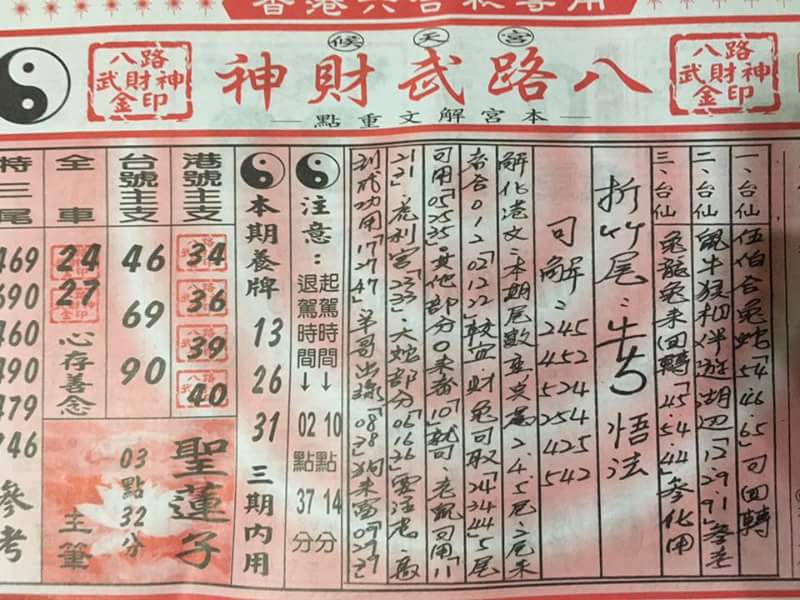 香港六合彩專用
候天宮
八路武財神
八路
武財神
金印
八路
武財神
金印
本宮解文重點
一、台仙 伍伯合兔蛇「54.46.65」可回轉
二、台仙 鼠牛猴相伴遊湖辺「12.29.91」參考
三、台仙 龜龍兔來回轉「45.54.44」參化用
折竹尾:
悟法
可解:
245
452
524
254
425
542
解化港文:本期尾數 2.4.5尾.2尾来
合012「02.12.22」較宜.財兔可取「24.34.44」5尾
可用「05.25.35」其他部分0来看「10」就可.老鼠可用「11
21」 「23.33」大蛇部分「06.16.26」
用「17.27.47」羊哥出 「08.28」狗来 「09.29
注意:
起駕時間↓
10點14分
退駕時間↓
02點37分
本期養牌 13 26 31 三期內用
港號主支
34
36
39
40
台號主支
46
69
90
全車
24
27
心存善念
特三尾
469
690
460
490
479
746
參考
聖蓮子
03點32分
主筆